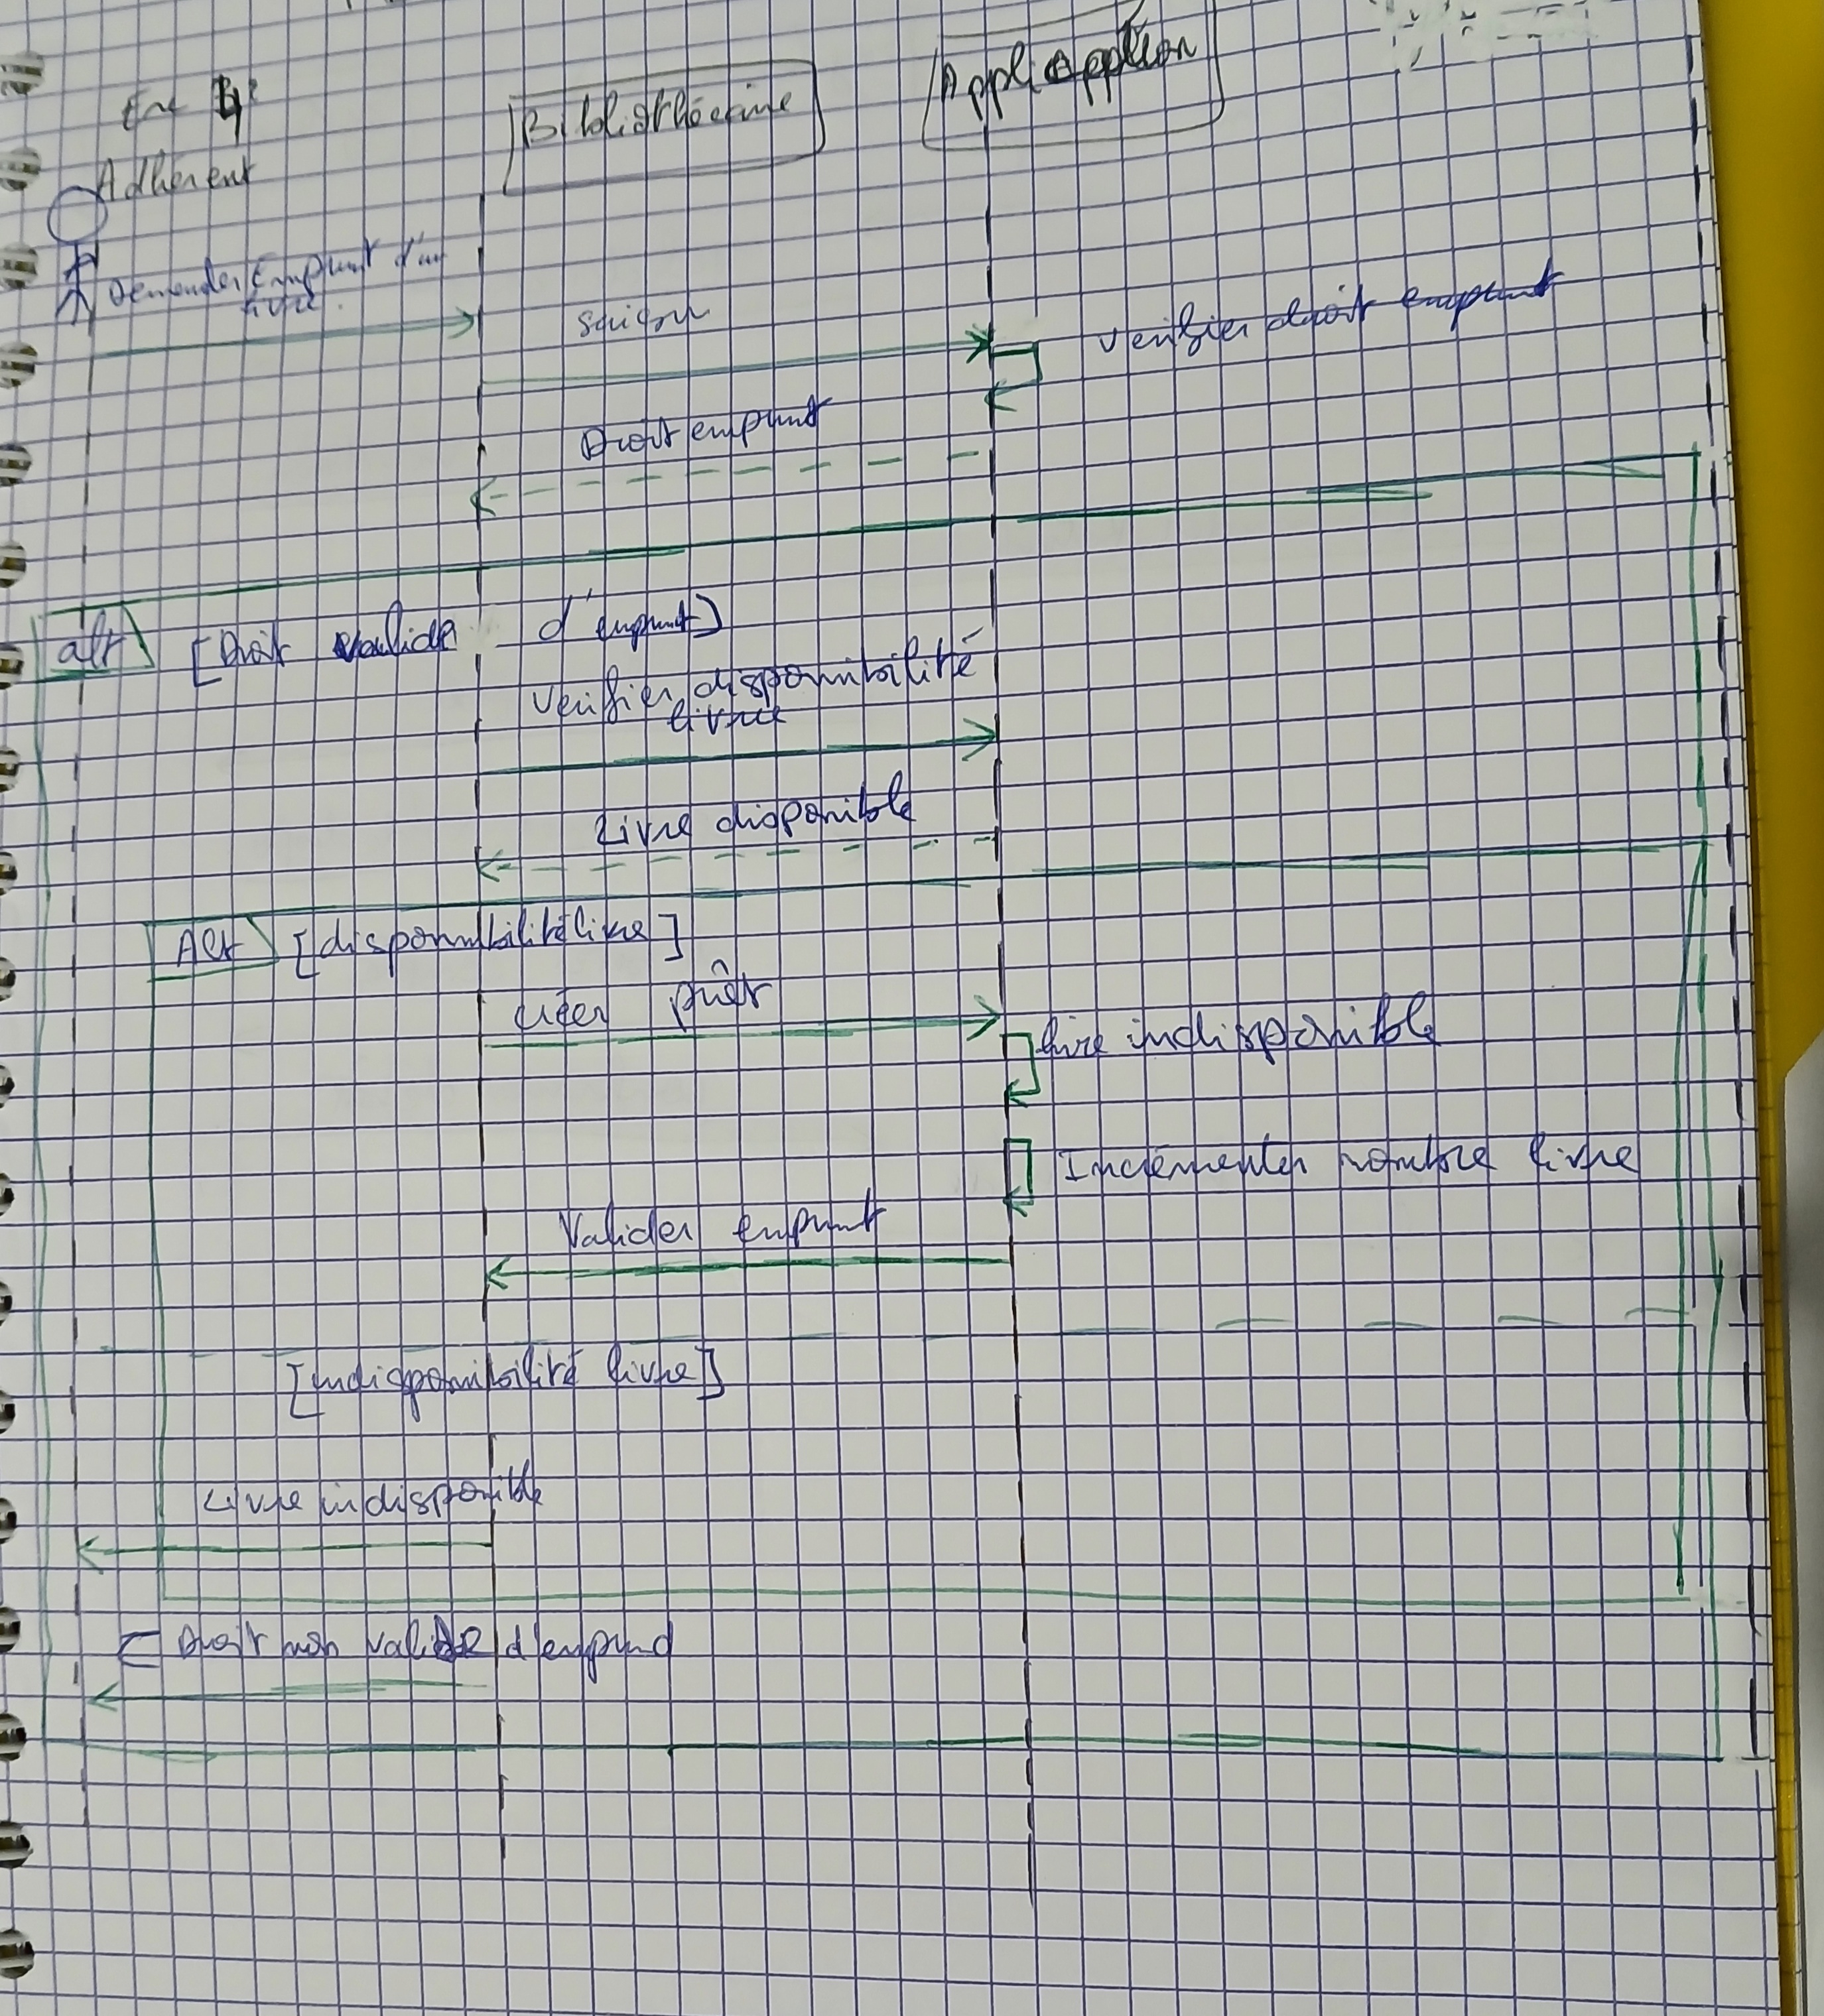 Exe 4:
Bibliothécaire
Application
Adhérent
Demander Emprunt d'un
livre.
saisir
vérifier droit emprunt
Droit emprunt
alt [Droit valide d'emprunt]
vérifier disponibilité
livre
Livre disponible
Alt [disponibilité livre]
créer prêt
livre indisponible
Incrémenter nombre livre
Valider emprunt
[indisponibilité livre]
Livre indisponible
[ Droit non valide d'emprund